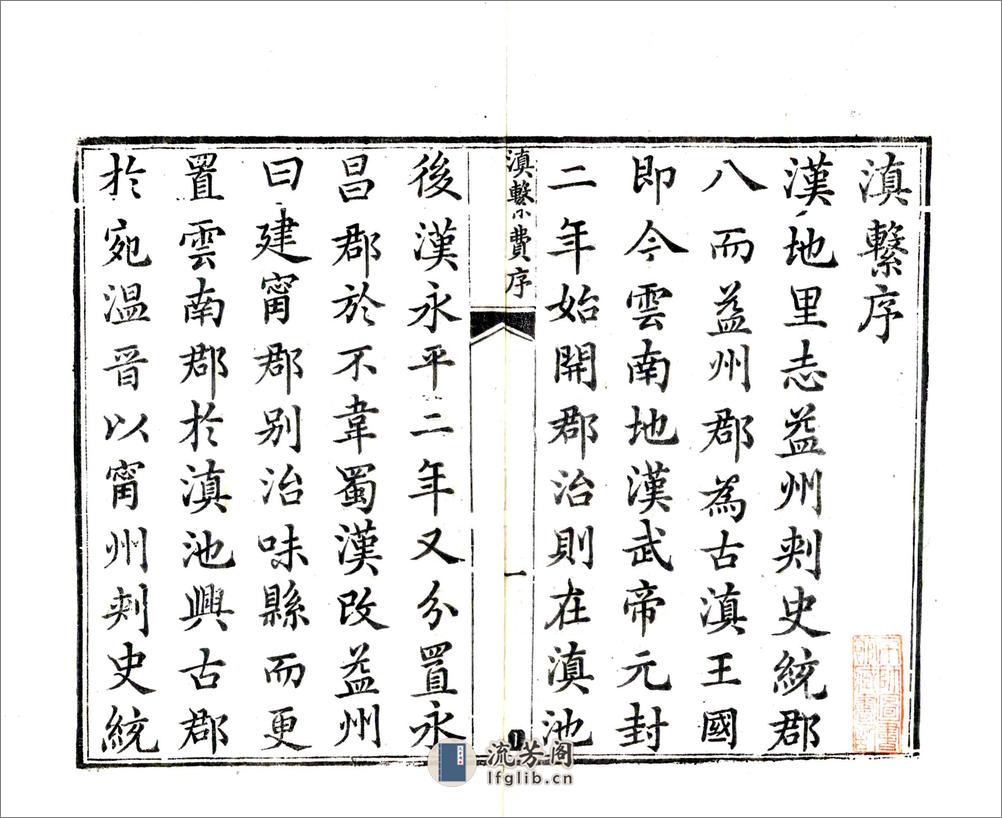 滇繫序
漢地里志益州刾史統郡
八而益州郡為古滇王國
即今雲南地漢武帝元封
二年始開郡治則在滇池
滇繫小費序
一
後漢永平二年又分置永
昌郡於不韋蜀漢改益州
曰建甯郡別治味縣而更
置雲南郡於滇池興古郡
於宛溫晉以甯州刾史統
流芳阁
lfglib.cn